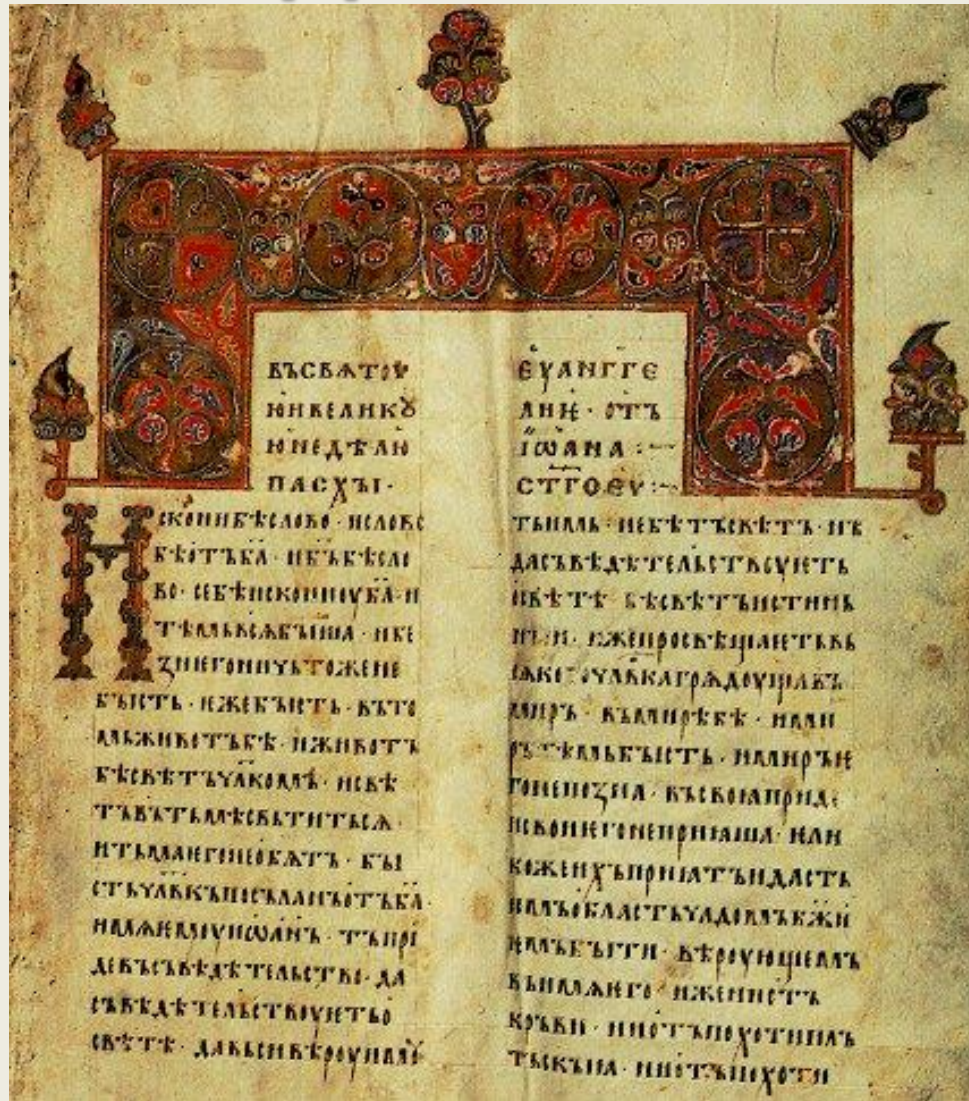 ВЪСВѦТОУ
ЮИВЕЛИКꙊ
ЮНЕДѢЛЮ
ПАСХЪІ·
ИСКОНИБѢСЛОВО·ИСЛОВО
БѢОТЪБ҃А·ИБ҃ЪБѢСЛО
ВО·СЕБѢИСКОНИОУБ҃А·И
ТѢМЬВЬСѦБЫША·ИБЕ
ꙀНЕГОНИЧЬТОЖЕНЕ
БЪІСТЬ·ЕЖЕБЪІСТЬ·ВЪТО
МЬЖИВОТЪБѢ·ИЖИВОТЪ
БѢСВѢТЪЧЛ҃КОМЪ·ИСВѢ
ТЪВЪТЬМѢСВЬТИТЬСѦ·
ИТЬМАѤГОНЕОБѦТЪ·БЫ
СТЬЧЛ҃ВКЪПОСЪЛАНЪОТЪБ҃А·
ИМѦѤМОУИѠАНЪ·ТЪПРІ
ДЕВЪСЪВѢДѢТЕЛЬСТВО·ДА
СЪВѢДѢТЕЛЬСТВОУѤТЬО
СВѢТѢ·ДАВЬСИВѢРОУИМОУ
ЕУАНГГЕ
ЛИѤ·ОТЪ
ІѠАНА
СТ҃ГОЕУ
ТЬИМЬ·НЕБѢТЪСВѢТЪ·НЪ
ДАСЪВѢДѢТЕЛЬСТВОУѤТЬ
ОСВѢТѢ·БѢСВѢТЪИСТИНЬ
НЪИ·ИЖЕПРОСВѢЩАѤТЬВЬ
СѦКОГОЧЛ҃ВКАГРѦДОУЩАВЪ
МИРЪ·ВЪМИРѢБѢ·ИМИ
РЪТѢМЬБЫСТЬ·ИМИРЪѤ
ГОНЕПОꙀНА·ВЪСВОꙖПРИДЕ
ИСВОИѤГОНЕПРИꙖША·ѤЛИ
КОЖЕИХЪПРИꙖТЪИДАСТЬ
ИМЪОБЛАСТЬЧАДОМЪБ҃ЖИ
ѤМЪБЫТИ·ВѢРОУЮЩЕМЪ
ВЪИМѦѤГО·ИЖЕНИОТЪ
КРЪВИ·НИОТЪПОХОТИПЛЪ
ТЬСКЪІꙖ·НИОТЪПОХОТИ